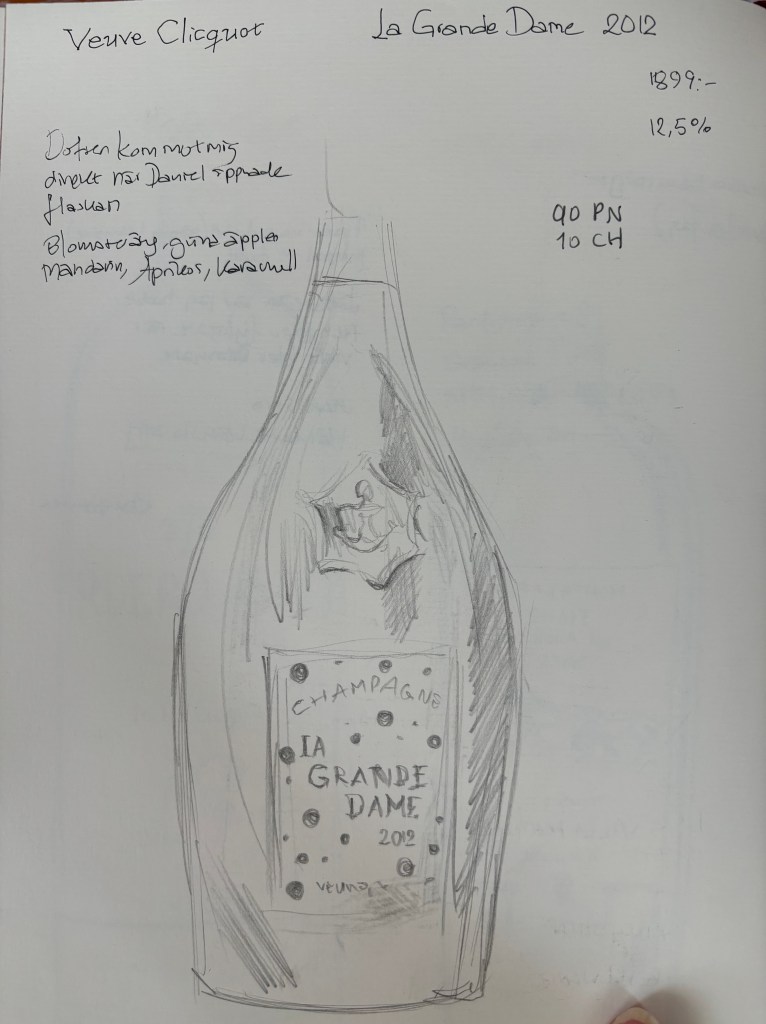 Veuve Clicquot
La Grande Dame 2012
1899:-
12,5%
Doften kom mot mig
direkt när Daniel öppnade
flaskan
Blomsteräng, gröna äpple
Mandarin, Aprikos, Karamell
90 PN
10 CH
CHAMPAGNE
LA
GRANDE
DAME
2012